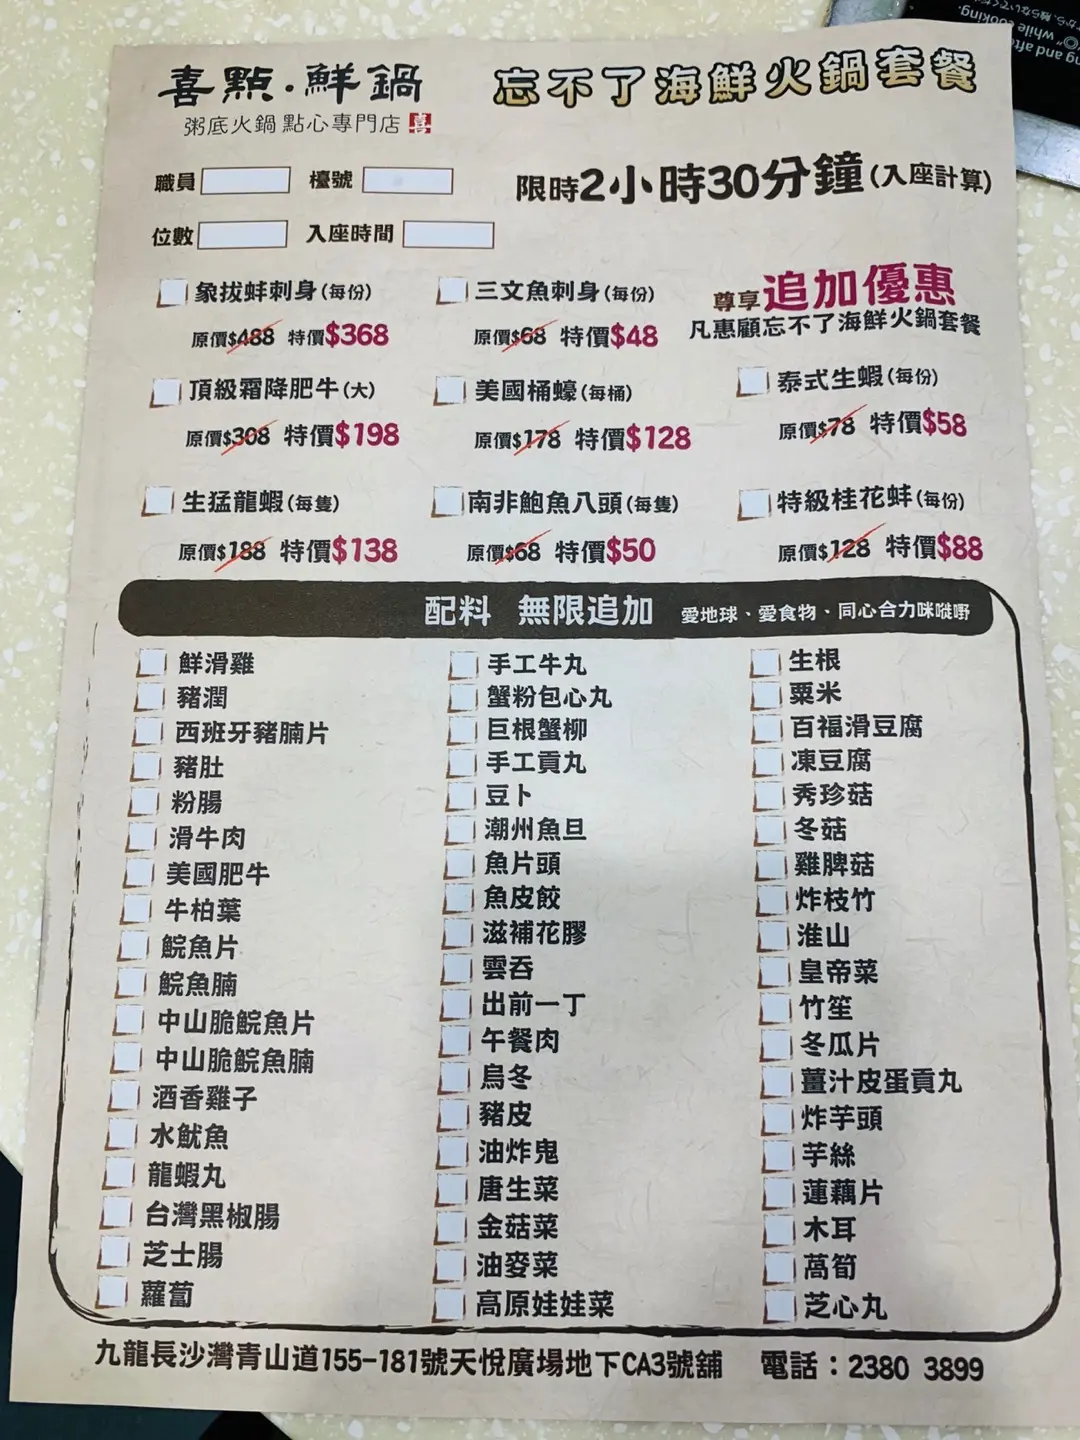 喜點·鮮鍋
粥底火鍋 點心專門店 喜
忘不了海鮮火鍋套餐
職員
檯號
限時2小時30分鐘(入座計算)
位數
入座時間
象拔蚌刺身(每份)
原價$488 特價$368
三文魚刺身(每份)
原價$68 特價$48
尊享追加優惠
凡惠顧忘不了海鮮火鍋套餐
頂級霜降肥牛(大)
原價$308 特價$198
美國桶蠔(每桶)
原價$178 特價$128
泰式生蝦(每份)
原價$78 特價$58
生猛龍蝦(每隻)
原價$188 特價$138
南非鮑魚八頭(每隻)
原價$68 特價$50
特級桂花蚌(每份)
原價$128 特價$88
配料 無限追加 愛地球、愛食物、同心合力咪嘥嘢
鮮滑雞
豬潤
西班牙豬腩片
豬肚
粉腸
滑牛肉
美國肥牛
牛柏葉
鯇魚片
鯇魚腩
中山脆鯇魚片
中山脆鯇魚腩
酒香雞子
水魷魚
龍蝦丸
台灣黑椒腸
芝士腸
蘿蔔
手工牛丸
蟹粉包心丸
巨根蟹柳
手工貢丸
豆卜
潮州魚旦
魚片頭
魚皮餃
滋補花膠
雲吞
出前一丁
午餐肉
烏冬
豬皮
油炸鬼
唐生菜
金菇菜
油麥菜
高原娃娃菜
生根
粟米
百福滑豆腐
凍豆腐
秀珍菇
冬菇
雞脾菇
炸枝竹
淮山
皇帝菜
竹笙
冬瓜片
薑汁皮蛋貢丸
炸芋頭
芋絲
蓮藕片
木耳
萵筍
芝心丸
九龍長沙灣青山道155-181號天悅廣場地下CA3號舖 電話：2380 3899
while cooking.